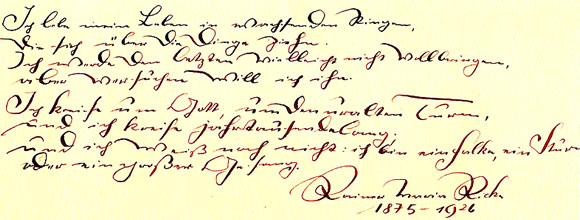 Ich lebe mein Leben in wachsenden Ringen,
die sich über die Dinge ziehn.
Ich werde den letzten vielleicht nicht vollbringen,
aber versuchen will ich ihn.
Ich kreise um Gott, um den uralten Turm,
und ich kreise jahrtausendelang;
und ich weiß noch nicht: ich bin ein Falke, ein Sturm
oder ein großer Gesang.
Rainer Maria Rilke
1875-1926